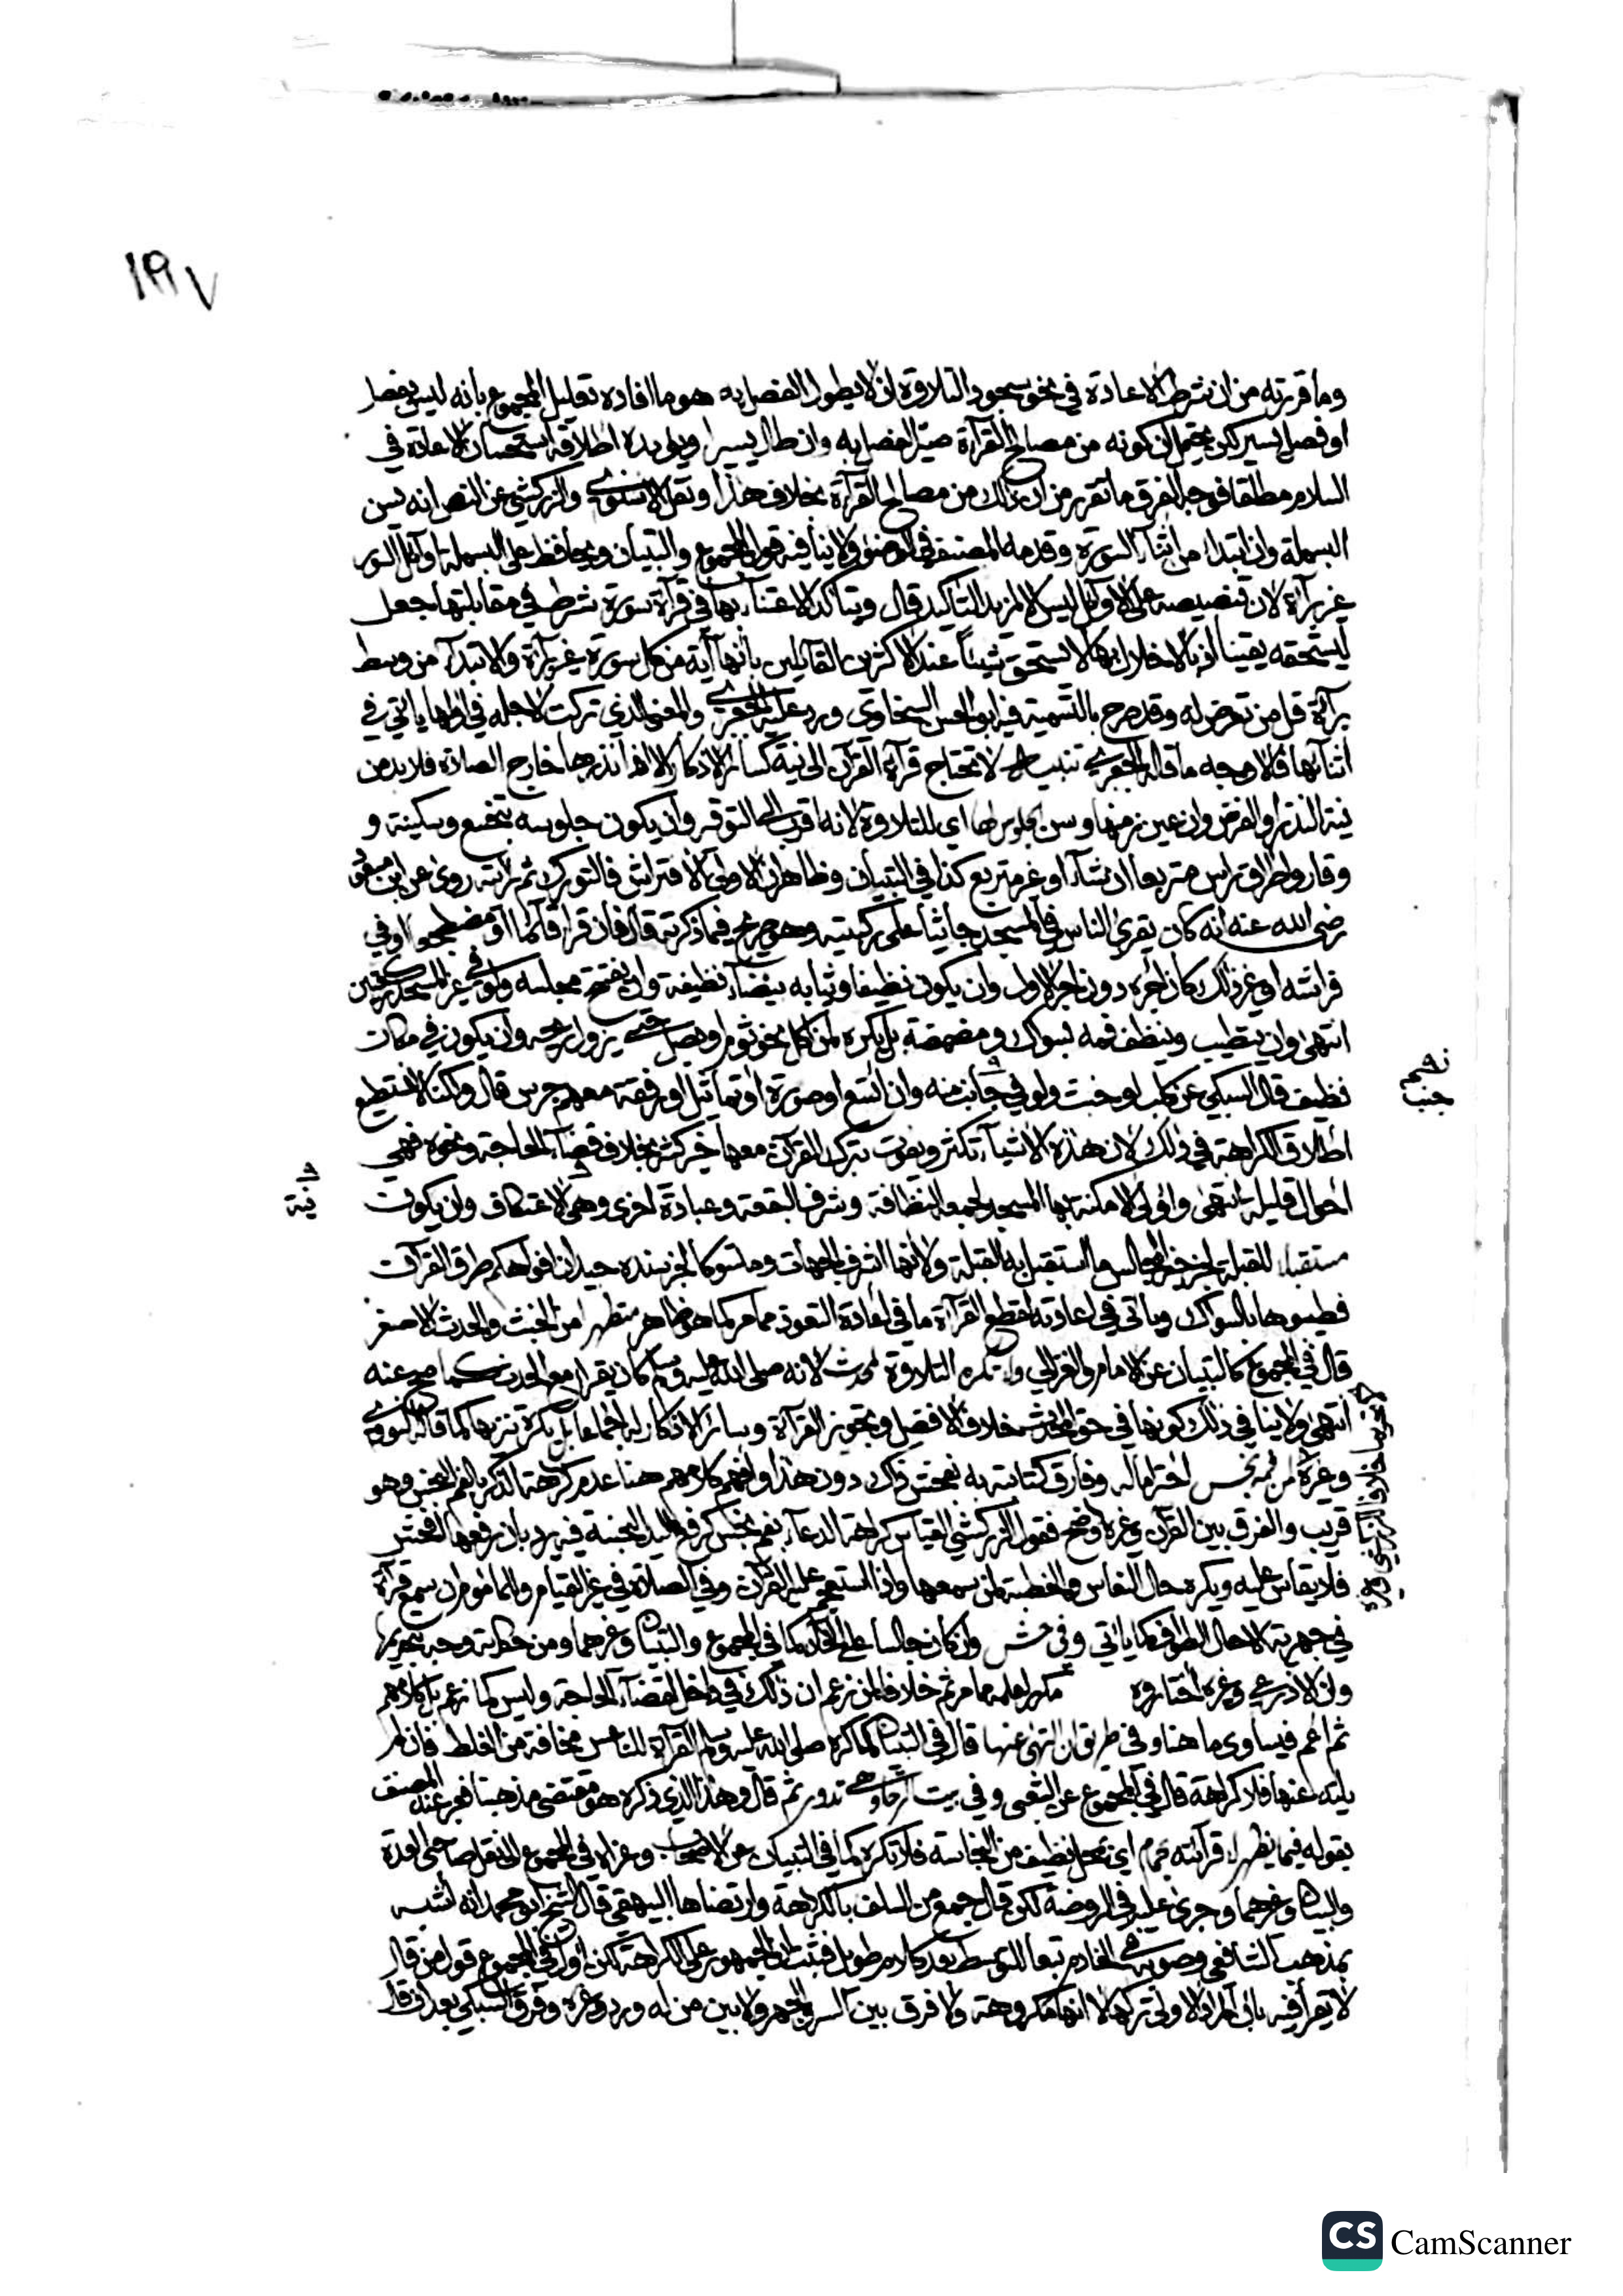 ١٩٧
وما قررته من ان شرط الاعادة في نحو سجود التلاوة ان لا يطول الفصل به هو ما افاده تعليل المجموع بأنه ليس بفصل
او فصل يسير لكن يحتمل ان كونه من مصالح القرآة صير الفصل به وان طال يسيرا ويؤيده اطلاقه استحسان الاعادة في
السلام مطلقا فوجه الفرق ما تقرر من ان ذلك من مصالح القرآة بخلاف هذا ونقل الاسنوي والزركشي عن النص انه يسن
البسملة وان ابتدا من اثنآء السورة وقدمه المصنف في الوضوء ولا ينافيه قول المجموع والتبيان ويحافظ على البسملة اوائل السور
غير برآة لان تنصيصه على الاوائل ليس الا لمزيد التأكيد قال ويتأكد الاعتنآء بها في قرآة سورة شرط في مقابلتها جعل
ليستحقه يقينا اذ بالاخلال بها لا يستحق شيئا عند الاكثرين القائلين بأنها آية من كل سورة غير برآة والابتدآء من وسط
برآة قل من تعرض له وقد صرح بالتسمية فيه ابو الحسن السخاوي ورد عليه الجعبري والمعنى الذي تركت لاجله في اولها يأتي في
اثنائها فالاوجه ما قاله الجعبري تنبيه لا تحتاج قرآة القرآن الى نية كسائر الاذكار الا اذا نذرها خارج الصلاة فلا بد من
نية النذر او الفرض وان عين زمنها وسن الجلوس لها اي للتلاوة لانه اقرب الى التوقير وان يكون جلوسه بتخشع وسكينة و
وقار واطراق راس متربعا ان شآء او غير متربع كذا في التبيان وظاهر ان الاولى الافتراش فالتورك ثم رأيته روى عن ابن مسعود
رضي الله عنه انه كان يقرئ الناس في المسجد جاثيا على ركبتيه وهو صريح فيما ذكرته قال فان قرا قائما او مضطجعا او في
فراشه او غير ذلك كان اجره دون اجر الاول وان يكون نظيفا وثيابه بيضآء نظيفة وان يفتتح مجلسه ولو في غير المسجد بركعتين
انتهى وان يتطيب وينظف فمه بسواك ومضمضة بل يكره لمن اكل نحو ثوم او بصل حتى يزول ريحه وان يكون في مكان
نظيف قال السبكي عن كلب او خبث ولو في جانب منه وان اتسع او صورة او تماثيل او رفقة معهم جرس قال ولكنا لا نستطيع
جنب
اطلاق الكراهة في ذلك لان هذه الاشيآء تكثر ويفوت بترك القرآن معها خير كثير بخلاف قضآء الحاجة ونحوه فهي
احوال قليلة انتهى واولى الامكنة بها المسجد لجمعه النظافة وشرف البقعة وعبادة اخرى وهي الاعتكاف وان يكون
نية
مستقبلا للقبلة لخبر خير المجالس ما استقبل به القبلة ولانها اشرف الجهات ومتسوكا لخبر سنده جيد ان افواهكم طرق القرآن
فطيبوها بالسواك ويأتي في اعادته لقطع القرآة ما في اعادة التعوذ مما مر كما هو ظاهر متطهرا من الخبث والحدث الاصغر
قال في المجموع كالتبيان عن الامام والغزالي ولا تكره التلاوة لمحدث لانه صلى الله عليه وسلم كان يقرا مع الحدث كما صح عنه
انتهى ولا ينافي ذلك كونها في حق المحدث خلاف الافضل وتجوز القرآة وسائر الاذكار اجماعا بل يكره تنزيها كما قاله النووي
وغيره من فمه نجس احتراما له وفارق كتابته به بفحش ذاك دون هذا وافهم كلامهم هنا عدم كراهة الذكر بالفم النجس وهو
قريب والفرق بين القرآن وغيره واضح فقول الزركشي القياس كراهة الدعآء بفم نجس كرفع اليد النجسة فيه يرد بان رفعها افحش
فلا يقاس عليه ويكره حال النعاس والخطبة لمن سمعها واذا استعجم عليه القرآن وفي الصلاة في غير القيام والمأموم ان سمع قرآة
في جهرية لا حال الطواف كما يأتي وفي حش وان كان جالسا على الخلآء كما في المجموع والتبيان وغيرهما ومن حكايته وجه بتحريمها
وان الاذرعي وغيره اختاروه مكروها مما مر ثم خلافا لمن زعم ان ذلك في داخل لقضآء الحاجة وليس كما زعم بل كلامهم
ثم اعم فيساوي ما هنا وفي طريق ان التهى عنها قال في التبيان كما كره صلى الله عليه وسلم القرآة للناعس مخافة من الغلط فان لم
يلته عنها فلا كراهة قال في المجموع عن الشعبي وفي بيت الرحا وهي تدور ثم قال وهذا الذي ذكره هو مقتضى مذهبنا فعبر عنه المصنف
بقوله فيما يظهر لا قرآته بحمام اي بمحل نظيف من النجاسة فلا تكره كما في التبيان عن الاصحاب وعزاه في المجموع الى نقل صاحبي العدة
والبيان وغيرهما وجرى عليه في الروضة لكن قال جمع من السلف بالكراهة وارتضاها البيهقي قال الشيخ ابو محمد انه اشبه
بمذهب الشافعي وصوبه في الخادم تبعا للتوسط بعد كلام طويل فثبت ان الجمهور على الكراهة لكن اول في المجموع قول من قال
لا يقرأ فيه بان المراد الاولى تركها لا انها مكروهة ولا فرق بين السر والجهر ولا بين من له ورد وغيره وفرق السبكي بعد ان قال
CS CamScanner